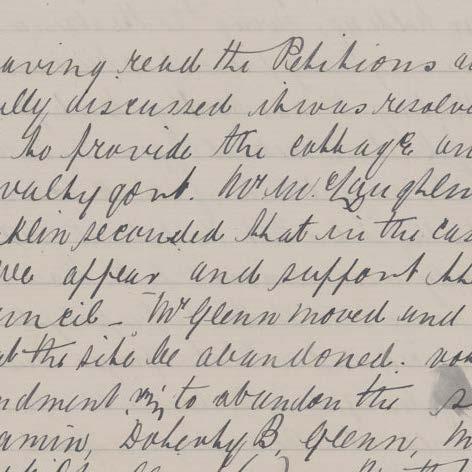 aving read the Petitions a
ully discussed it was resolve
to provide the cottage an
Mr McLaughlin
klin seconded that in the cas
we appear and support th
uncil - Mr Glenn moved and
at the site be abandoned. vo
ndment viz to abandon the s
amin, Doherty B, Glenn, M